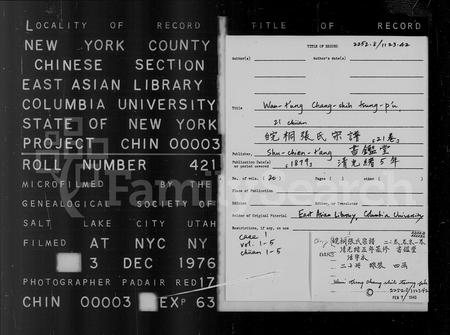 LOCALITY OF RECORD
NEW YORK COUNTY
CHINESE SECTION
EAST ASIAN LIBRARY
COLUMBIA UNIVERSITY
STATE OF NEW YORK
PROJECT CHIN 00003
ROLL NUMBER 421
MICROFILMED BY THE
GENEALOGICAL SOCIETY OF
SALT LAKE CITY UTAH
FILMED AT NYC NY
3 DEC 1976
PHOTOGRAPHER PADAIR RED 17
CHIN 00003 EXP 63
TITLE OF RECORD
TITLE OF RECORD
2252.8/1123.42
Author(s)
Author's date(s)
Title
Wan-t'ung Chang-shih tsung-p'u,
21 chüan
皖桐張氏宗譜, 21卷,
Publisher,
Shu-chien-t'ang 書鑑堂
Publication Date(s)
or period covered
(1879) 清光緒5年
No. of vols. (20)
Pages ( )
Place of Publication
Edition
Editor, or Translator
Owner of Original Material
East Asian Library, Columbia University
Restrictions, if any, on use
case 1
vol. 1-5
chüan 1-5
皖桐張氏宗譜
清光緒五年 書鑑堂
活字本
二十冊
2252.8/1123.42
FEB 7 1940
FamilySearch